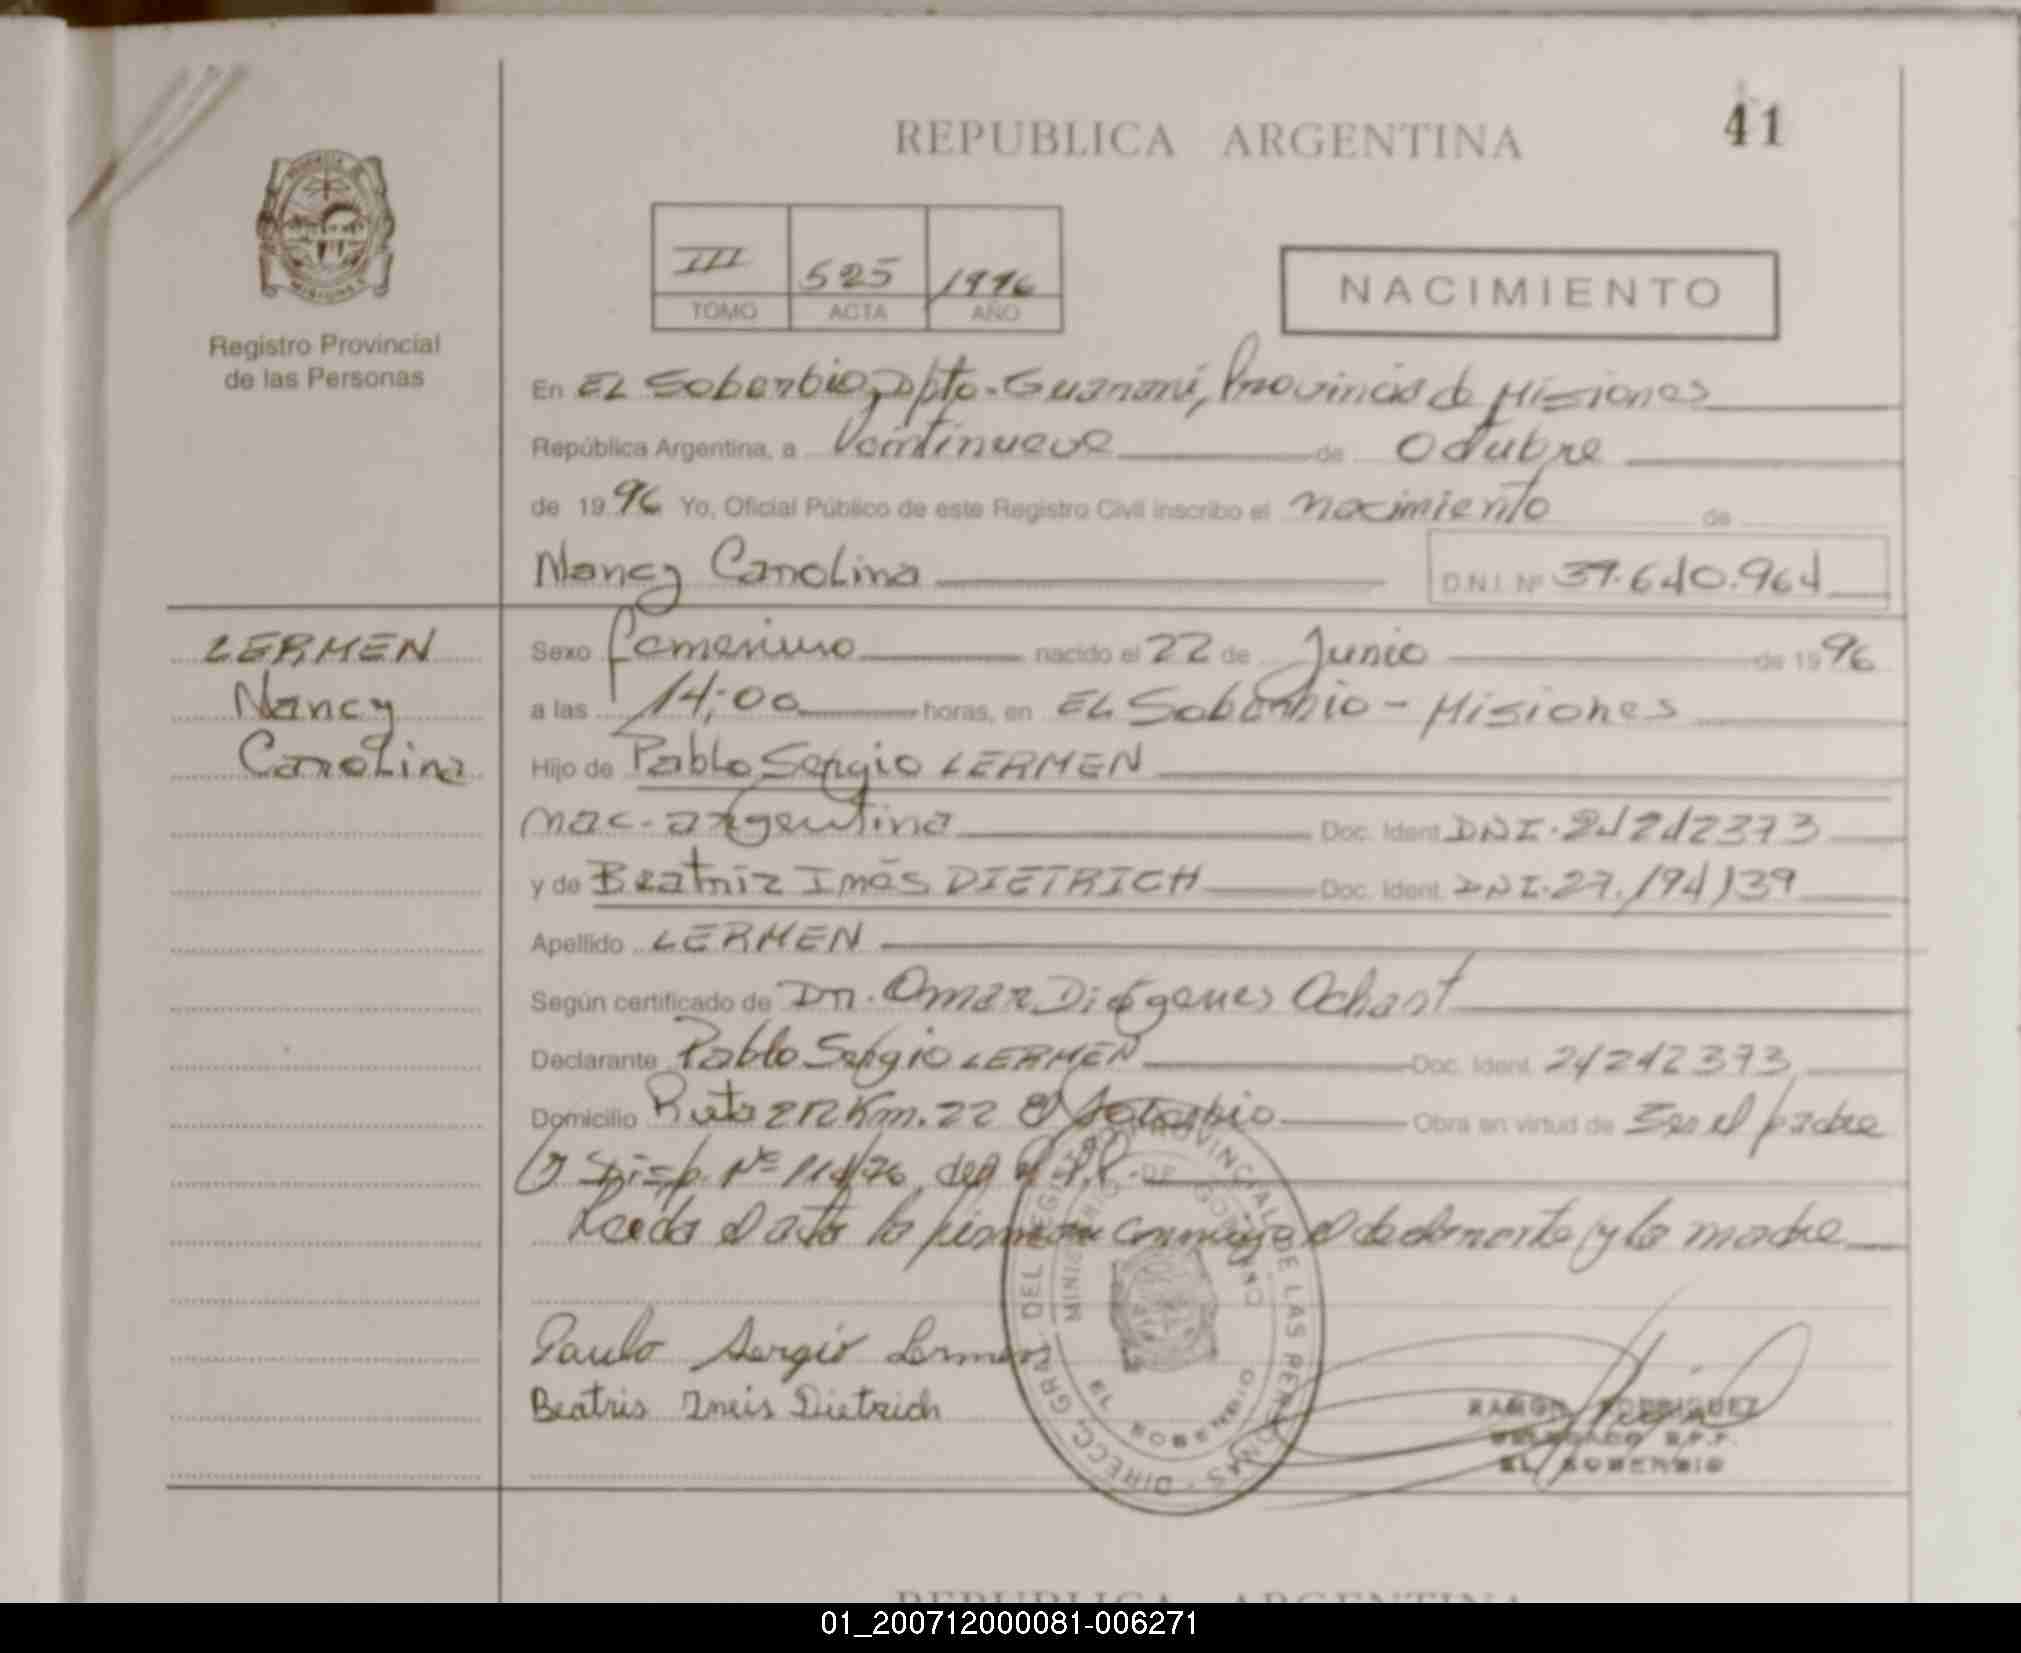 41
REPUBLICA ARGENTINA
MISIONES
Registro Provincial
de las Personas
III 525 1996
TOMO ACTA AÑO
NACIMIENTO
En EL Soberbio, Dpto. Guaraní, Provincia de Misiones
República Argentina, a Veintinueve de Octubre
de 1996 Yo, Oficial Público de este Registro Civil inscribo el nacimiento de
Nancy Carolina D.N.I. Nº 39.640.964
LERMEN
Nancy
Carolina
Sexo femenino nacido el 22 de Junio de 1996
a las 14:00 horas, en EL Soberbio - Misiones
Hijo de Pablo Sergio LERMEN
nac. argentina Doc. Ident. DNI. 24242373
y de Beatriz Inés DIETRICH Doc. Ident. DNI. 27.194139
Apellido LERMEN
Según certificado de Dr. Omar Diógenes Ochast
Declarante Pablo Sergio LERMEN Doc. Ident. 24242373
Domicilio Ruta 212 Km. 22 El Soberbio Obra en virtud de Ser el padre
Disp. Nº 114/76 del R.P.P.
Leída el acta la firman conmigo el declarante y la madre
Paulo Sergio Lermen
Beatris Ineis Dietrich
DIRECC. GRAL. DEL REGISTRO PROVINCIAL DE LAS PERSONAS
MINISTERIO DE GOBIERNO
EL SOBERBIO
RAMON RODRIGUEZ
DELEGADO R.P.P.
EL SOBERBIO
REPUBLICA ARGENTINA
01_200712000081-006271